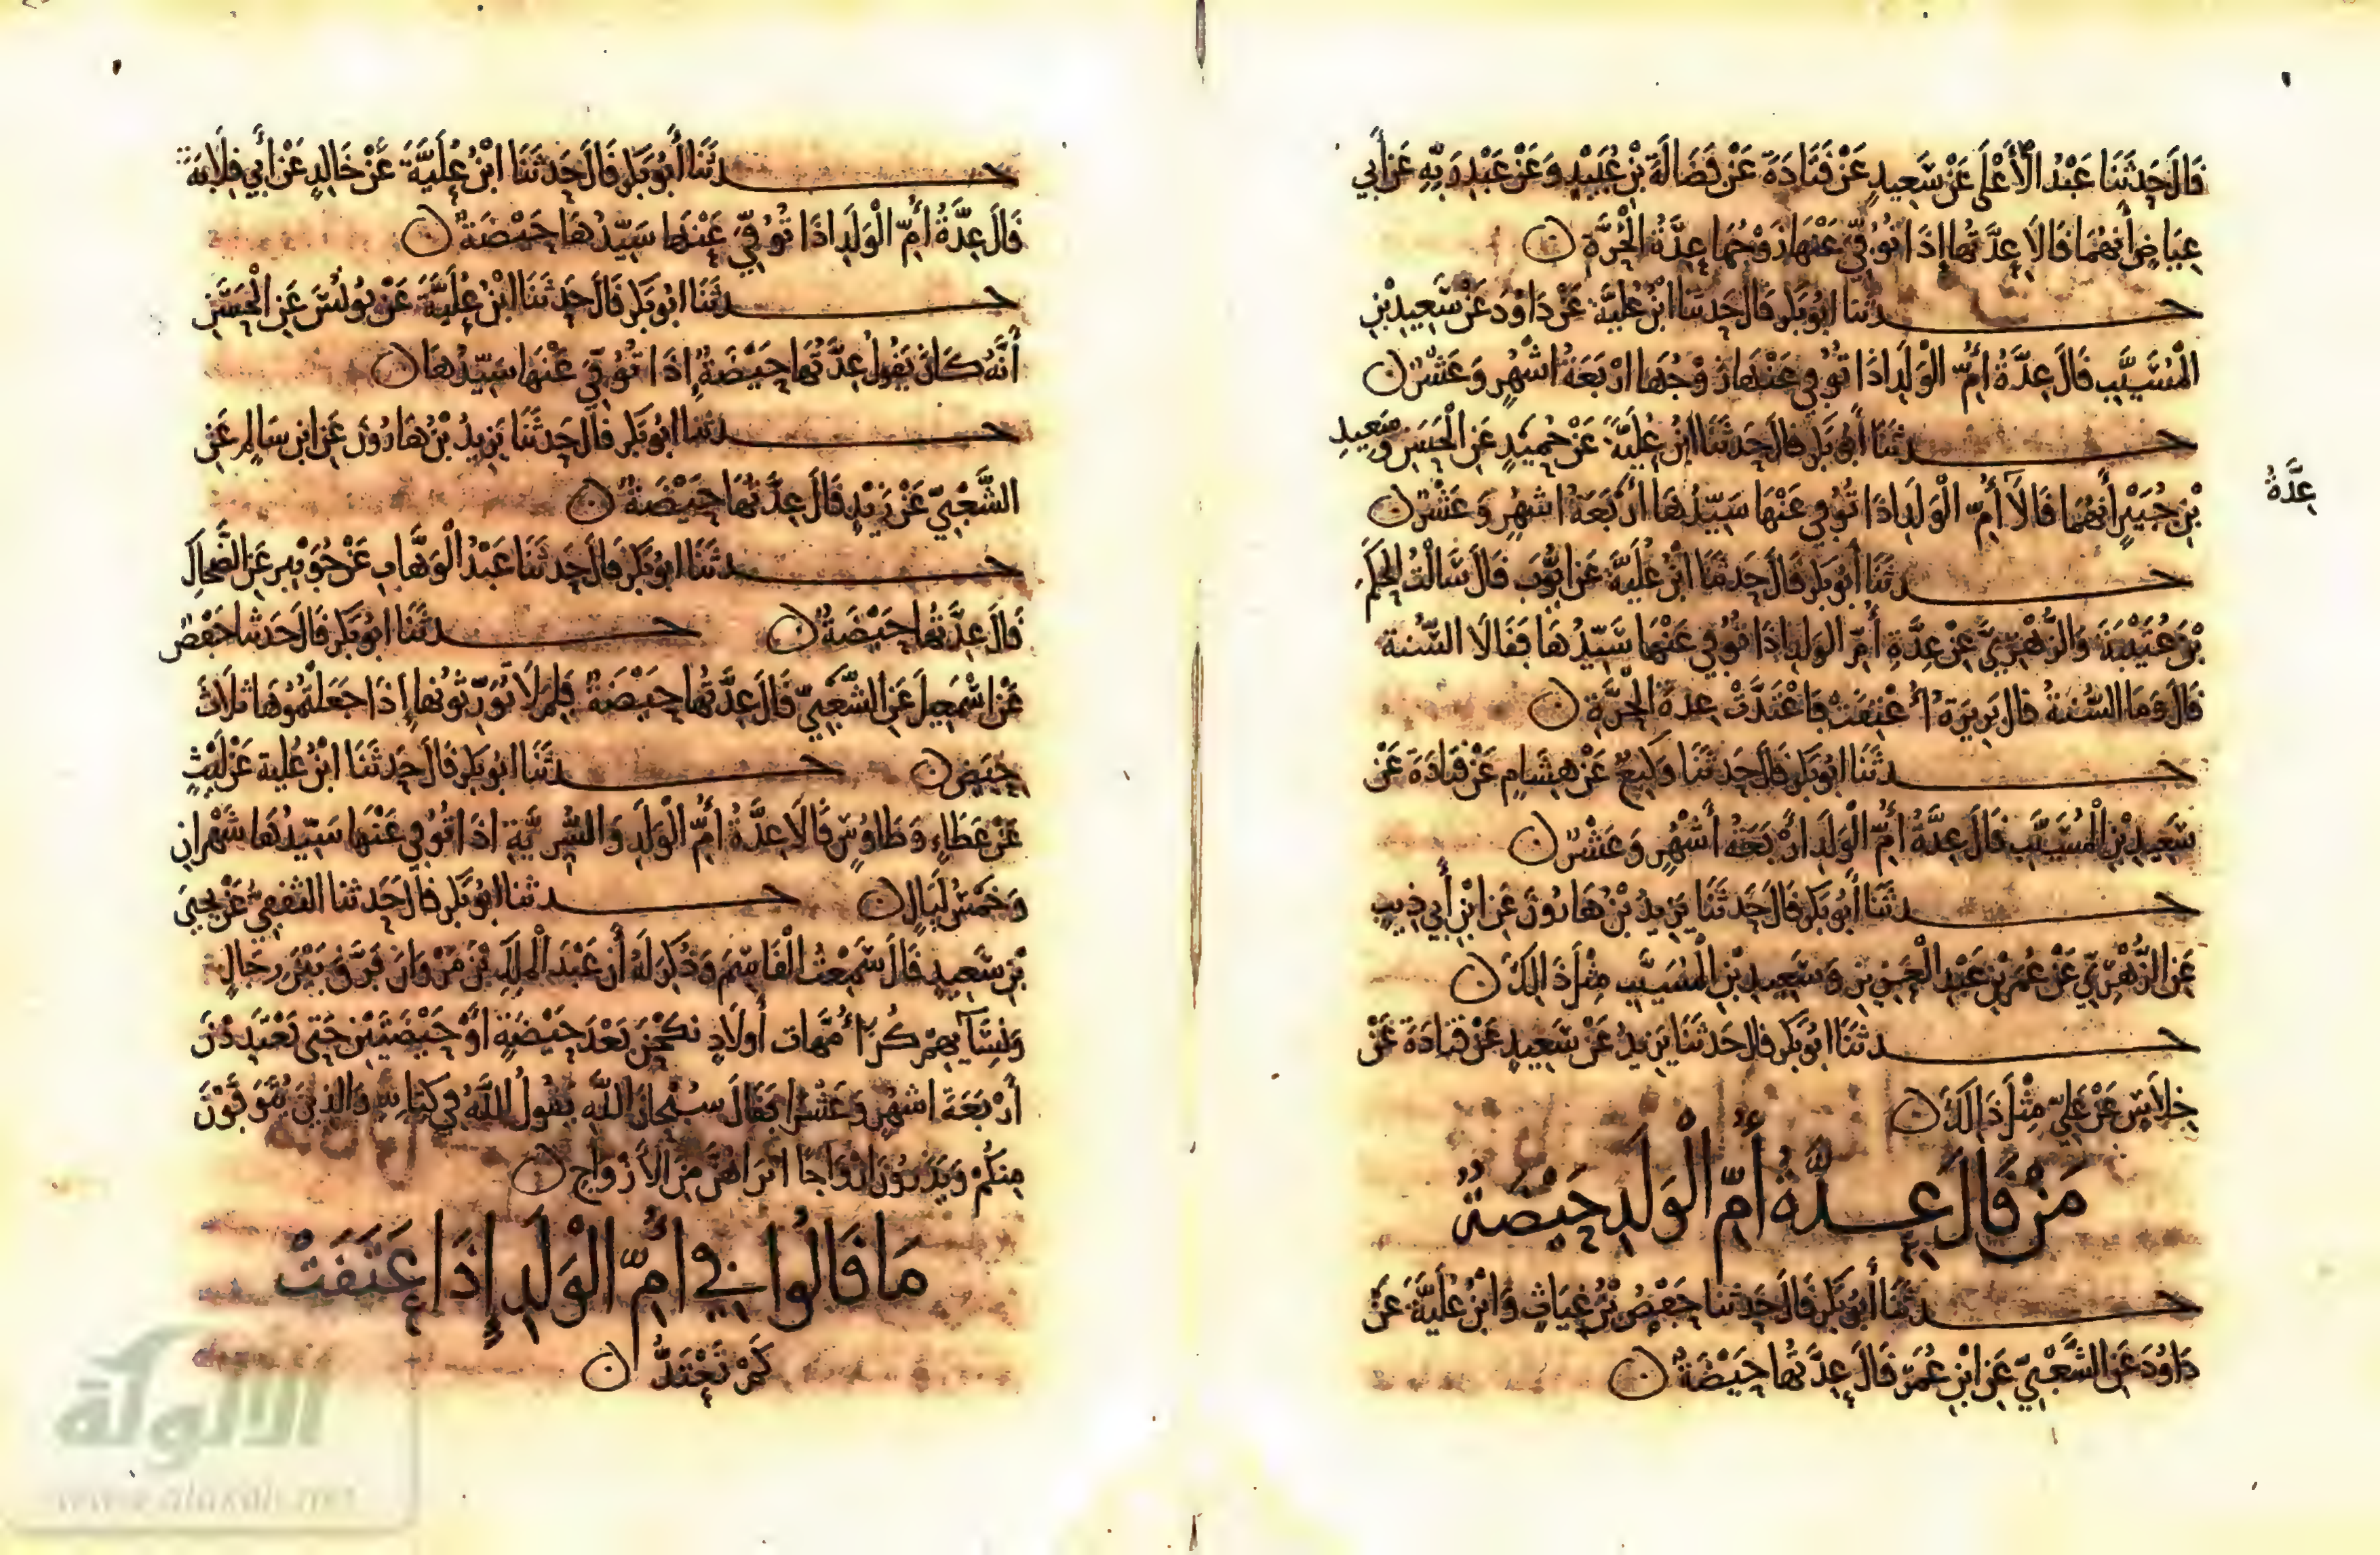 قَالَ حَدَثَنَا عَبْدُ الْأَعْلَى عَنْ سَعِيدٍ عَنْ قَتَادَةَ عَنْ فَضَالَةَ بْنِ عُبَيْدٍ وَعَنْ عَبْدِ رَبِّهِ عَنْ أَبِي
عِيَاضٍ أَنَّهُمَا قَالَا عِدَّتُهَا إِذَا تُوُفِّيَ عَنْهَا زَوْجُهَا عِدَّةُ الْحُرَّةِ
حدثنا ابو بكر قال حدثنا ابْنُ عُلَيَّةَ عَنْ دَاوُدَ عَنْ سَعِيدِ بْنِ
الْمُسَيَّبِ قَالَ عِدَّةُ أُمِّ الْوَلَدِ اذَا تُوُفِّيَ عَنْهَا زَوْجُهَا ارْبَعَةُ اشْهُرٍ وَعَشْرٌ
حدثَنَا أَبُو بَكْرٍ قَالَ حَدَثَنَا ابْنُ عُلَيَّةَ عَنْ حُمَيْدٍ عَنِ الْحَسَنِ وَسَعِيدِ
بْنِ جُبَيْرٍ أَنَّهُمَا قَالَا أُمِّ الْوَلَدِ اذَا تُوُفِّيَ عَنْهَا سَيِّدُهَا أَرْبَعَةُ اشْهُرٍ وَعَشْرٌ
عِدَّةُ
حدثَنَا أَبُو بَكْرٍ قَالَ حَدثَنَا ابْنُ عُلَيَّةَ عَنْ ايُّوبَ قَالَ سَالْتُ الْحَكَمَ
بْنَ عُتَيْبَةَ وَالزُّهْرِيَّ عَنْ عِدَّةِ أُمِّ الْوَلَدِ اذَا تُوُفِّيَ عَنْهَا سَيِّدُهَا فَقَالَا السُّنَّةُ
قَالَ وَمَا السُّنَّةُ قَالَ بَرِيرَةُ أُعْتِقَتْ فَاعْتَدَّتْ عِدَّةَ الْحُرَّةِ
حدثَنَا ابُو بَكْرٍ قَالَ حَدثَنَا وَكِيعٌ عَنْ هِشَامٍ عَنْ قَتَادَةَ عَنْ
سَعِيدِ بْنِ الْمُسَيَّبِ قَالَ عِدَّةُ أُمِّ الْوَلَدِ ارْبَعَةُ أَشْهُرٍ وَعَشْرٌ
حدثَنَا أَبُو بَكْرٍ قَالَ حَدَثَنَا يَزِيدُ بْنُ هَارُونَ عَنِ ابْنِ أَبِي ذِيبٍ
عَنِ الزُّهْرِيِّ عَنْ عُمَرَ بْنِ عَبْدِ الْعَزِيزِ وَسَعِيدِ بْنِ الْمُسَيَّبِ مِثْلَ ذَالِكَ
حدثَنَا ابُو بَكْرٍ قال حَدثَنَا يَزِيدُ عَنْ سَعِيدٍ عَنْ قَتَادَةَ عَنْ
خِلَاسٍ عَنْ عَلِيٍّ مِثْلَ ذَالِكَ
مَنْ قَالَ عِدَّةُ أُمِّ الْوَلَدِ حَيْضَةٌ
حدثَنَا أَبُو بَكْرٍ قَالَ حَدثنا حَفْصُ بْنُ غِيَاثٍ وَابْنُ عُلَيَّةَ عَنْ
دَاوُدَ عَنِ الشَّعْبِيِّ عَنِ ابْنِ عُمَرَ قَالَ عِدَّتُهَا حَيْضَةٌ
حدثَنَا أَبُو بَكْرٍ قَالَ حَدثَنَا ابْنُ عُلَيَّةَ عَنْ خَالِدٍ عَنْ أَبِي قِلَابَةَ
قَالَ عِدَّةُ أُمِّ الْوَلَدِ اذَا تُوُفِّيَ عَنْهَا سَيِّدُهَا حَيْضَةٌ
حدثَنَا ابُو بَكْرٍ قَالَ حَدثَنَا ابْنُ عُلَيَّةَ عَنْ يُونُسَ عَنِ الْحَسَنِ
أَنَّهُ كَانَ يَقُولُ عِدَّتُهَا حَيْضَةٌ إِذَا تُوُفِّيَ عَنْهَا سَيِّدُهَا
حدثنا ابُو بَكْرٍ قَالَ حَدثَنَا يَزِيدُ بْنُ هَارُونَ عَنِ ابْنِ سَالِمٍ عَنِ
الشَّعْبِيِّ عَنْ زَيْدٍ قَالَ عِدَّتُهَا حَيْضَةٌ
حدثَنَا ابُو بَكْرٍ قَالَ حَدثَنَا عَبْدُ الْوَهَّابِ عَنْ جُوَيْبِرٍ عَنِ الضَّحَّاكِ
قَالَ عِدَّتُهَا حَيْضَةٌ حدثَنَا ابُو بَكْرٍ قَالَ حَدثنا حَفْصٌ
عَنْ اسْمَعِيلَ عَنِ الشَّعْبِيِّ قَالَ عِدَّتُهَا حَيْضَةٌ فَلِمَ لَا تُوَرِّثُونَهَا إِذَا جَعَلْتُمُوهَا ثَلَاثَ
حِيَضٍ حدثَنَا ابُو بَكْرٍ قَالَ حَدثَنَا ابْنُ عُلَية عَنْ لَيْثٍ
عَنْ عَطَاءٍ وَطَاوُسٍ قَالَا عِدَّةُ أُمِّ الْوَلَدِ وَالسُّرِّيَّةِ اذَا تُوُفِّيَ عَنْهَا سَيِّدُهَا شَهْرَانِ
وَخَمْسُ لَيَالٍ حدثنا ابُو بَكْرٍ قَالَ حَدثنا الثقفِيُّ عَنْ يَحْيَى
بْنِ سَعِيدٍ قَالَ سَمِعْتُ الْقَاسِمَ وَذُكِرَ لَهُ أَن عَبْدَ الْمَلِكِ بْنَ مَرْوَانَ فَرَّقَ بَيْنَ رِجَالٍ
وَنِسَآيِهِمْ كُنَّ أُمَّهَات أَولَادٍ نكحْنَ بَعْدَ حَيْضَةٍ أَوْ حَيْضَتَيْنِ حَتى يَعْتَدِدْنَ
أَرْبَعَةَ اشْهُرٍ وَعَشْرًا فَقَالَ سُبْحَانَ اللَّهِ يَقُولُ اللَّهُ فِي كِتَابِهِ وَالذِينَ يُتَوَفَّوْنَ
مِنكُمْ وَيَذَرُونَ ازْوَاجًا اتَرَاهُنَّ مِنَ الأَزْوَاجِ
مَا قَالُوا فِي أُمِّ الْوَلَدِ إِذَا عَتَقَتْ
كَمْ تَعْتَدُّ
الألوكة
www.alukah.net